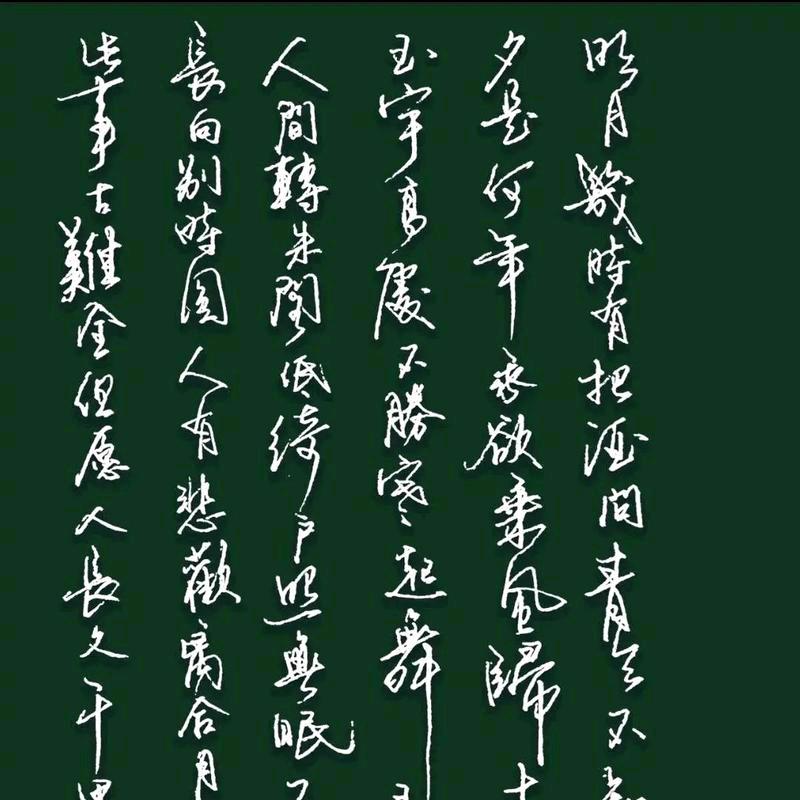 明月幾時有把酒問青天不知
夕是何年我欲乘風歸去
玉宇高處不勝寒起舞弄
人間轉朱閣低綺戶照無眠不
長向別時圓人有悲歡離合月
此事古難全但愿人長久千里